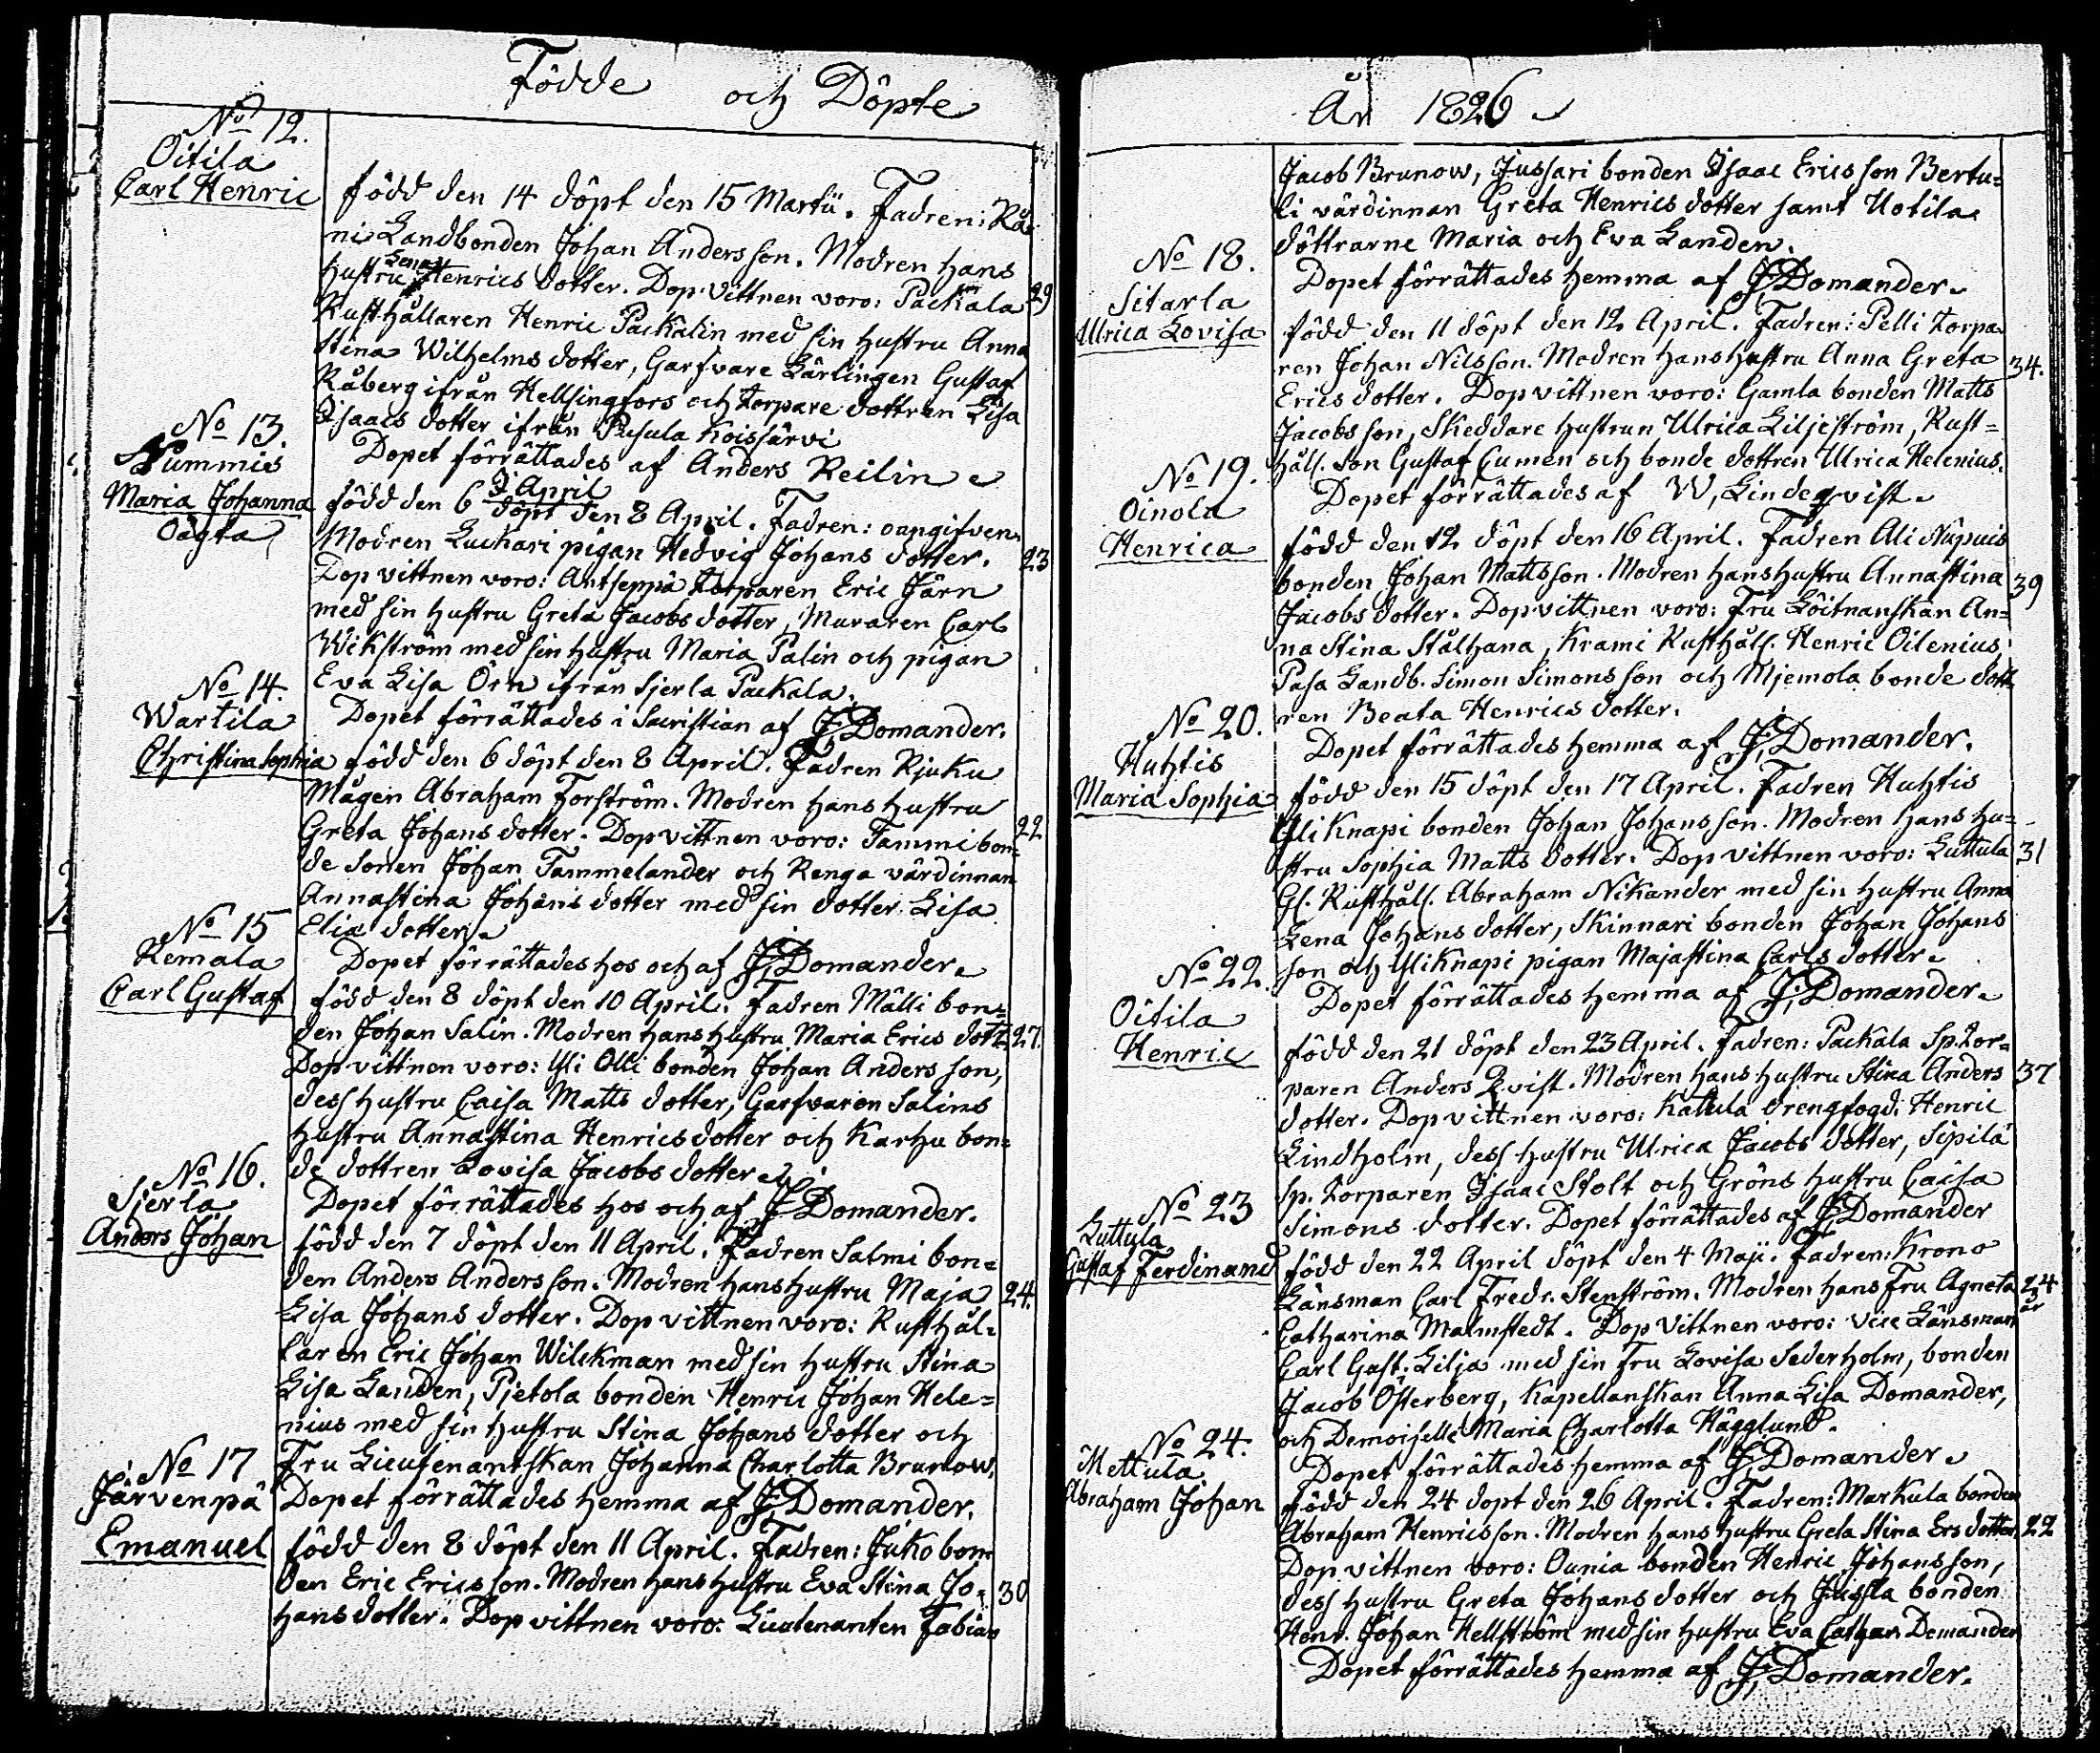 Födde och Döpte
No 12.
Oitila
Carl Henric
född den 14 döpt den 15 Martii. Fadren: Rå-
ni Landbonden Johan Andersson. Modren hans
hustru Lena Henrics dotter. Dop vittnen voro: Packala 29
Rusthållaren Henric Packalin med sin hustru Anna
Stina Wilhelms dotter, Garfvare Lärlingen Gustaf
Råberg ifrån Hellsingfors och torpare dottren Lisa
Isaacs dotter ifrån Pusula Koissärvi
Dopet förrättades af Anders Reilin
No 13.
Nummis
Maria Johanna
Oägta
född den 6 April döpt den 8 April. Fadren: oangifven
Modren Luchari pigan Hedvig Johans dotter. 23
Dop vittnen voro: Antseppä torparen Eric Järn
med sin hustru Greta Jacobs dotter, Muraren Carl
Wikström med sin hustru Maria Palin och pigan
Eva Lisa Örn ifrån Sjerla Packala.
Dopet förrättades i Sacristian af J. Domander.
No 14.
Wartila
Christina Sophia
född den 6 döpt den 8 April. Fadren Rjuku
Mågen Abraham Forström. Modren hans hustru
Greta Johans dotter. Dop vittnen voro: Tammi bon= 22
de sonen Johan Tammelander och Renga värdinnan
Annastina Johans dotter med sin dotter Lisa
Elia dotter.
Dopet förrättades hos och af J. Domander.
No 15
Remala
Carl Gustaf
född den 8 döpt den 10 April. Fadren Mälli bon=
den Johan Salin. Modren hans hustru Maria Erics dott. 27.
Dop vittnen voro: Yli Olli bonden Johan Andersson,
dess hustru Caisa Matts dotter, Garfvaren Salins
hustru Annastina Henricsdotter och Karhu bon=
de dottren Lovisa Jacobs dotter.
Dopet förrättades hos och af J. Domander.
No 16.
Sjerla
Anders Johan
född den 7 döpt den 11 April. Fadren Salmi bon=
den Anders Andersson. Modren hans hustru Maja 24.
Lisa Johans dotter. Dop vittnen voro: Rusthål=
laren Eric Johan Wilckman med sin hustru Stina
Lisa Landen, Pjetola bonden Henric Johan Hele=
nius med sin hustru Stina Johans dotter och
Fru Lieutenantskan Johanna Charlotta Brunow.
Dopet förrättades hemma af J. Domander.
No 17
Järvenpä
Emanuel
född den 8 döpt den 11 April. Fadren: Juko bon-
den Eric Ericsson. Modren hans hustru Eva Stina Jo- 30
hans dotter. Dop vittnen voro: Lieutenanten Fabian
År 1826
Jacob Brunow, Jussari bonden Isaac Ericsson Bertu=
li värdinnan Greta Henrics dotter samt Uotila
döttrarne Maria och Eva Landen.
Dopet förrättades hemma af J. Domander.
No 18.
Sitarla
Ulrica Lovisa
född den 11 döpt den 12 April. Fadren: Pelli torpa-
ren Johan Nilsson. Modren hans hustru Anna Greta 34.
Erics dotter. Dop vittnen voro: Gamla bonden Matts
Jacobsson, Skeddare hustrun Ulrica Liljeström, Rust=
håll. son Gustaf Cumen och bonde dottren Ulrica Helenius.
Dopet förrättades af W. Lindeqvist.
No 19.
Oinola
Henrica
född den 12 döpt den 16 April. Fadren Ali Nupuis
bonden Johan Mattsson. Modren hans hustru Annastina 39
Jacobs dotter. Dop vittnen voro: Fru Löitnanskan An=
na Stina Stålhana, Krami Rusthåll. Henric Oilenius,
Pasa Landb. Simon Simonsson och Mjemola bonde dott-
ren Beata Henrics dotter.
Dopet förrättades hemma af J. Domander.
No 20.
Huhtis
Maria Sophia
född den 15 döpt den 17 April. Fadren Huhtis
Yli Knapi bonden Johan Johansson. Modren hans hu-
stru Sophia Matts dotter. Dop vittnen voro: Luttula 31
Gl. Rusthåll. Abraham Nikander med sin hustru Anna
Lena Johans dotter, Skinnari bonden Johan Johans
son och Yli Knapi pigan Majastina Carls dotter.
Dopet förrättades hemma af J. Domander.
No 22.
Oitila
Henric
född den 21 döpt den 23 April. Fadren: Packala Sp. tor=
paren Anders Qvist. Modren hans hustru Stina Anders 37
dotter. Dop vittnen voro: Kattula drengfogd. Henric
Lindholm, dess hustru Ulrica Jacobs dotter, Sipilä
Sp. torparen Isaac Stolt och Gröns hustru Caisa
Simons dotter. Dopet förrättades af J. Domander
No 23
Luttula
Gustaf Ferdinand
född den 22 April döpt den 4 Maji. Fadren: Krono
Länsman Carl Fredr. Stenström. Modren hans Fru Agneta 24 år
Catharina Malmstedt. Dop Vittnen voro: Vice Länsman
Carl Gust. Lilja med sin Fru Lovisa Sederholm, bonden
Jacob Österberg, Kapellanskan Anna Lisa Domander,
och Demoiselle Maria Charlotta Hägglund.
Dopet förrättades hemma af J. Domander.
No 24.
Mettula
Abraham Johan
född den 24 döpt den 26 April. Fadren: Markula bonden
Abraham Henricsson. Modren hans hustru Greta Stina Ers dotter 22
Dop vittnen voro: Ounia bonden Henric Johansson,
dess hustru Greta Johans dotter och Jussla bonden
Henr. Johan Hellström med sin hustru Eva Cathar. Domander
Dopet förrättades hemma af J. Domander.